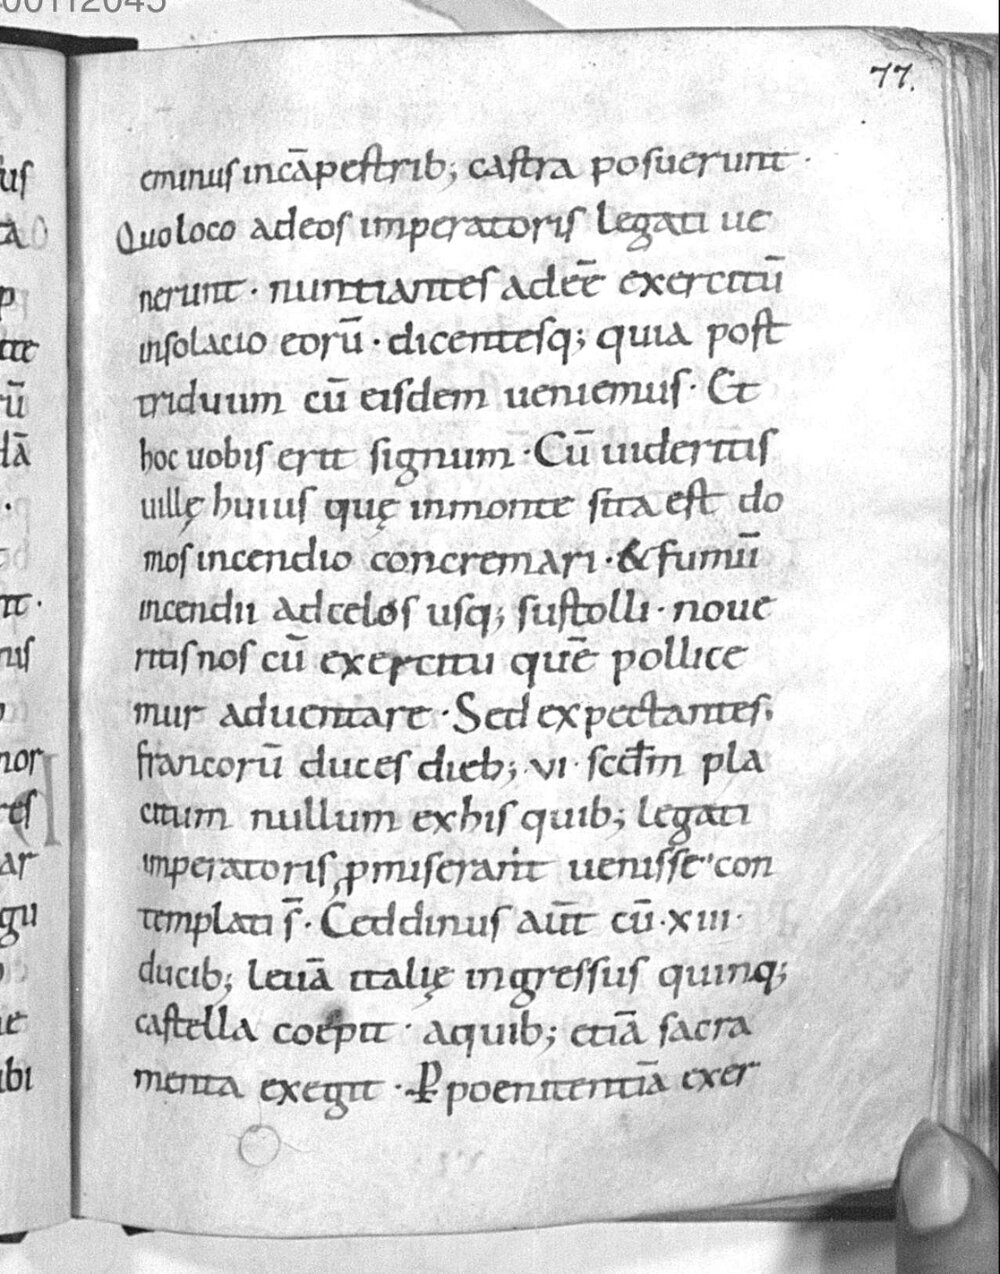 00112045
77.
eminus incāpestrib; castra posuerunt·
Quo loco ad eos imperatoris legati ue
nerunt· nuntiantes adeē exercitū
insolacio eorū· dicentesq; quia post
triduum cū eisdem ueniemus· Et
hoc uobis erit signum· Cū uideritis
uillę huius quę inmonte sita est do
mos incendio concremari· & fumū
incendii adcelos usq; sustolli· noue
ritis nos cū exercitu quē pollice
mur aduentare· Sed expectantes
francorū duces dieb; ·vi· scdm̄ pla
citum nullum exhis quib; legati
imperatoris ꝓmiserant uenisse con
templati s̄· Ceddinus aūt cū· xiii·
ducib; leuā italię ingressus quinq;
castella coepit· aquib; etiā sacra
menta exegit· Ꝑ poenitentiā exer